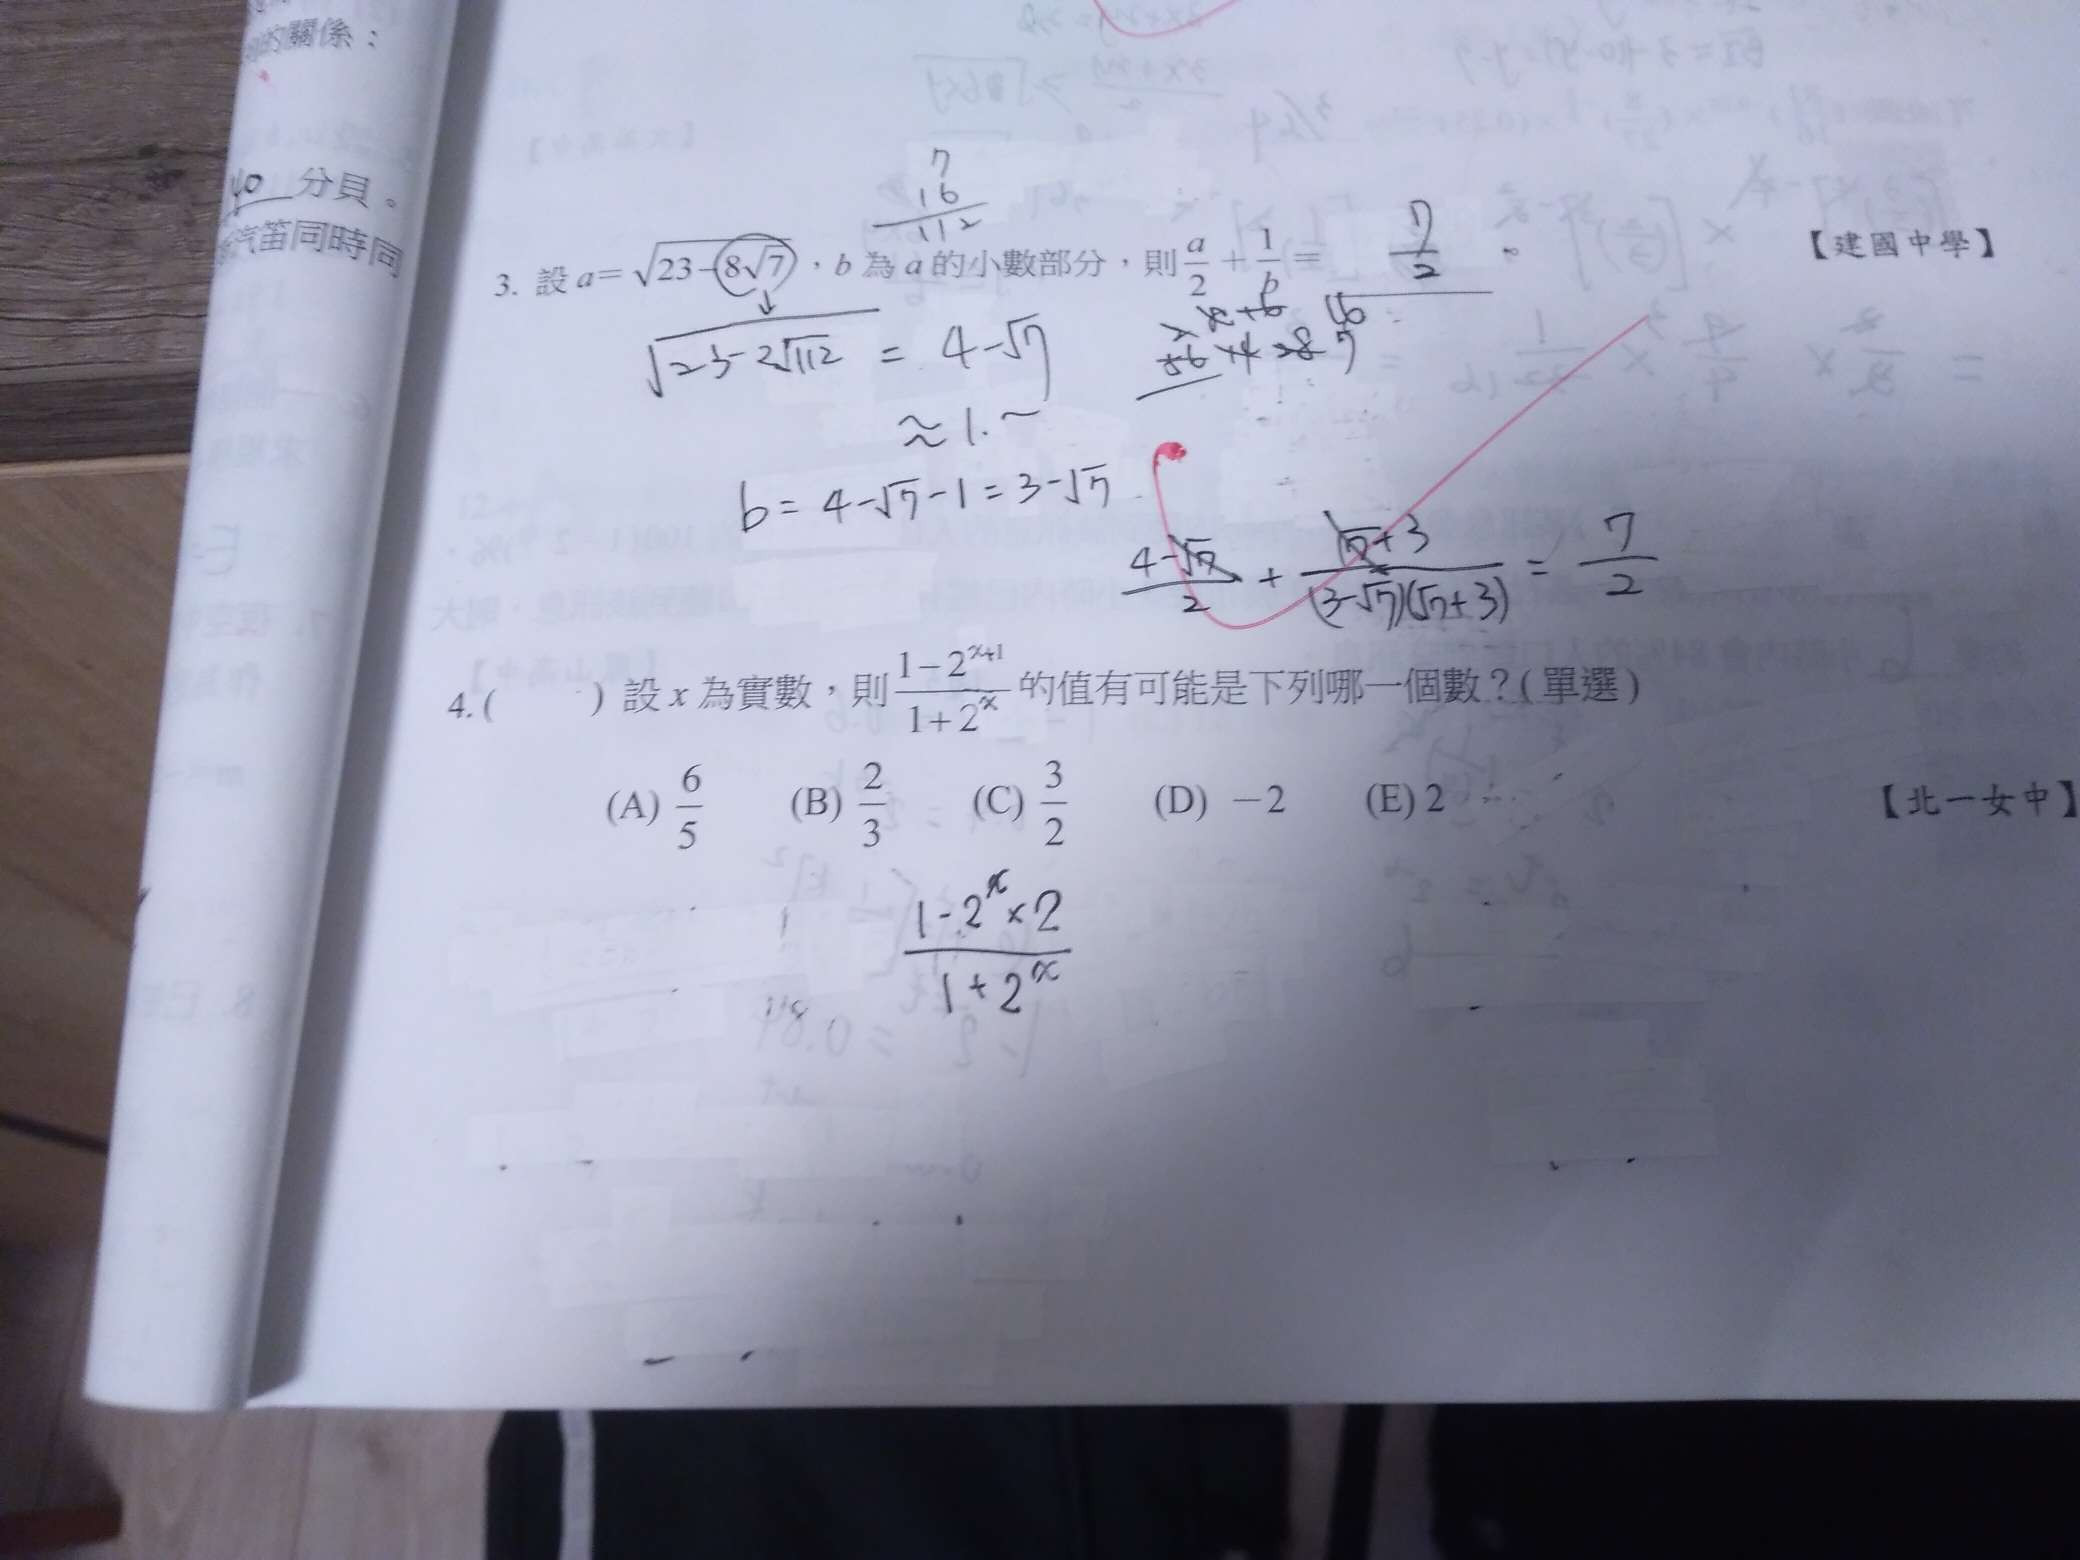 的關係：
40 分貝。
汽笛同時同
7
16
112
3. 設 a=√(23-8√7)，b 為 a 的小數部分，則 a/2 + 1/b = 7/2 。 【建國中學】
√(23-2√112) = 4-√7
≈1.~
b = 4-√7-1 = 3-√7
(4-√7)/2 + (√7+3)/((3-√7)(√7+3)) = 7/2
4. ( ) 設 x 為實數，則 (1-2^(x+1))/(1+2^x) 的值有可能是下列哪一個數？(單選)
(A) 6/5 (B) 2/3 (C) 3/2 (D) -2 (E) 2 【北一女中】
(1-2^x×2)/(1+2^x)